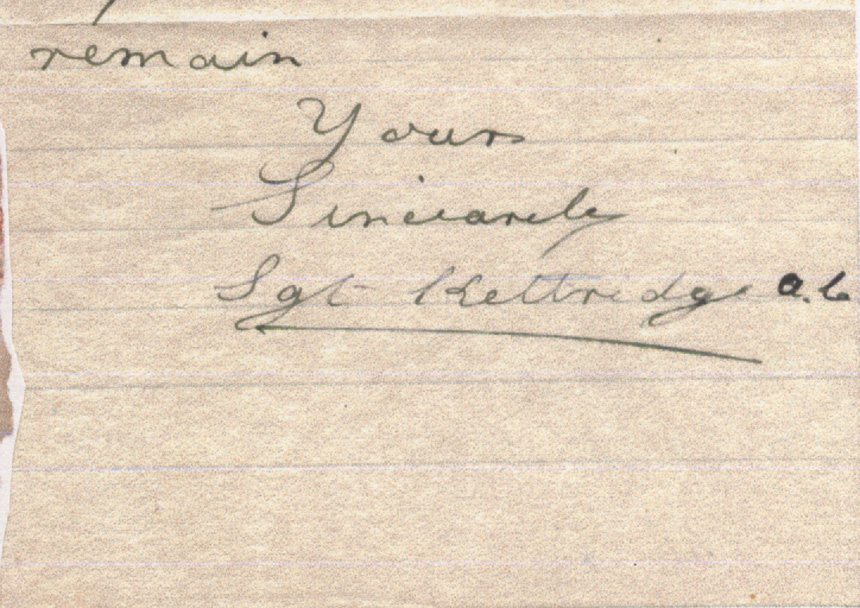 remain
Yours
Sincearely
Sgt Kettridge a.c